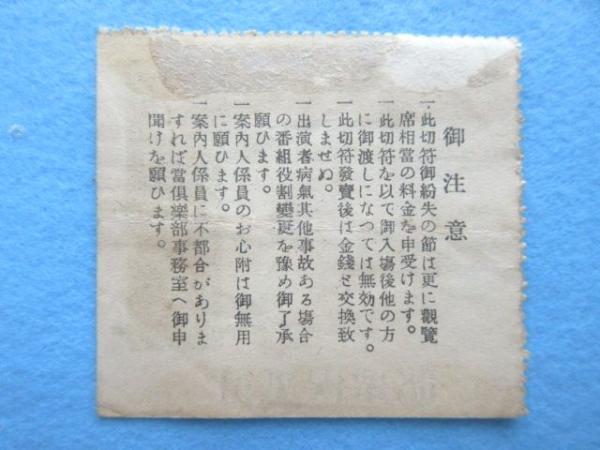 御注意
一此切符御紛失の節は更に觀覽
席相當の料金を申受けます。
一此切符を以て御入場後他の方
に御渡しになつては無効です。
一此切符發賣後は金錢と交換致
しませぬ。
一出演者病氣其他事故ある場合
の番組役割變更を豫め御了承
願ひます。
一案內人係員のお心附は御無用
に願ひます。
一案內人係員に不都合がありま
すれば當俱楽部事務室へ御申
聞けを願ひます。